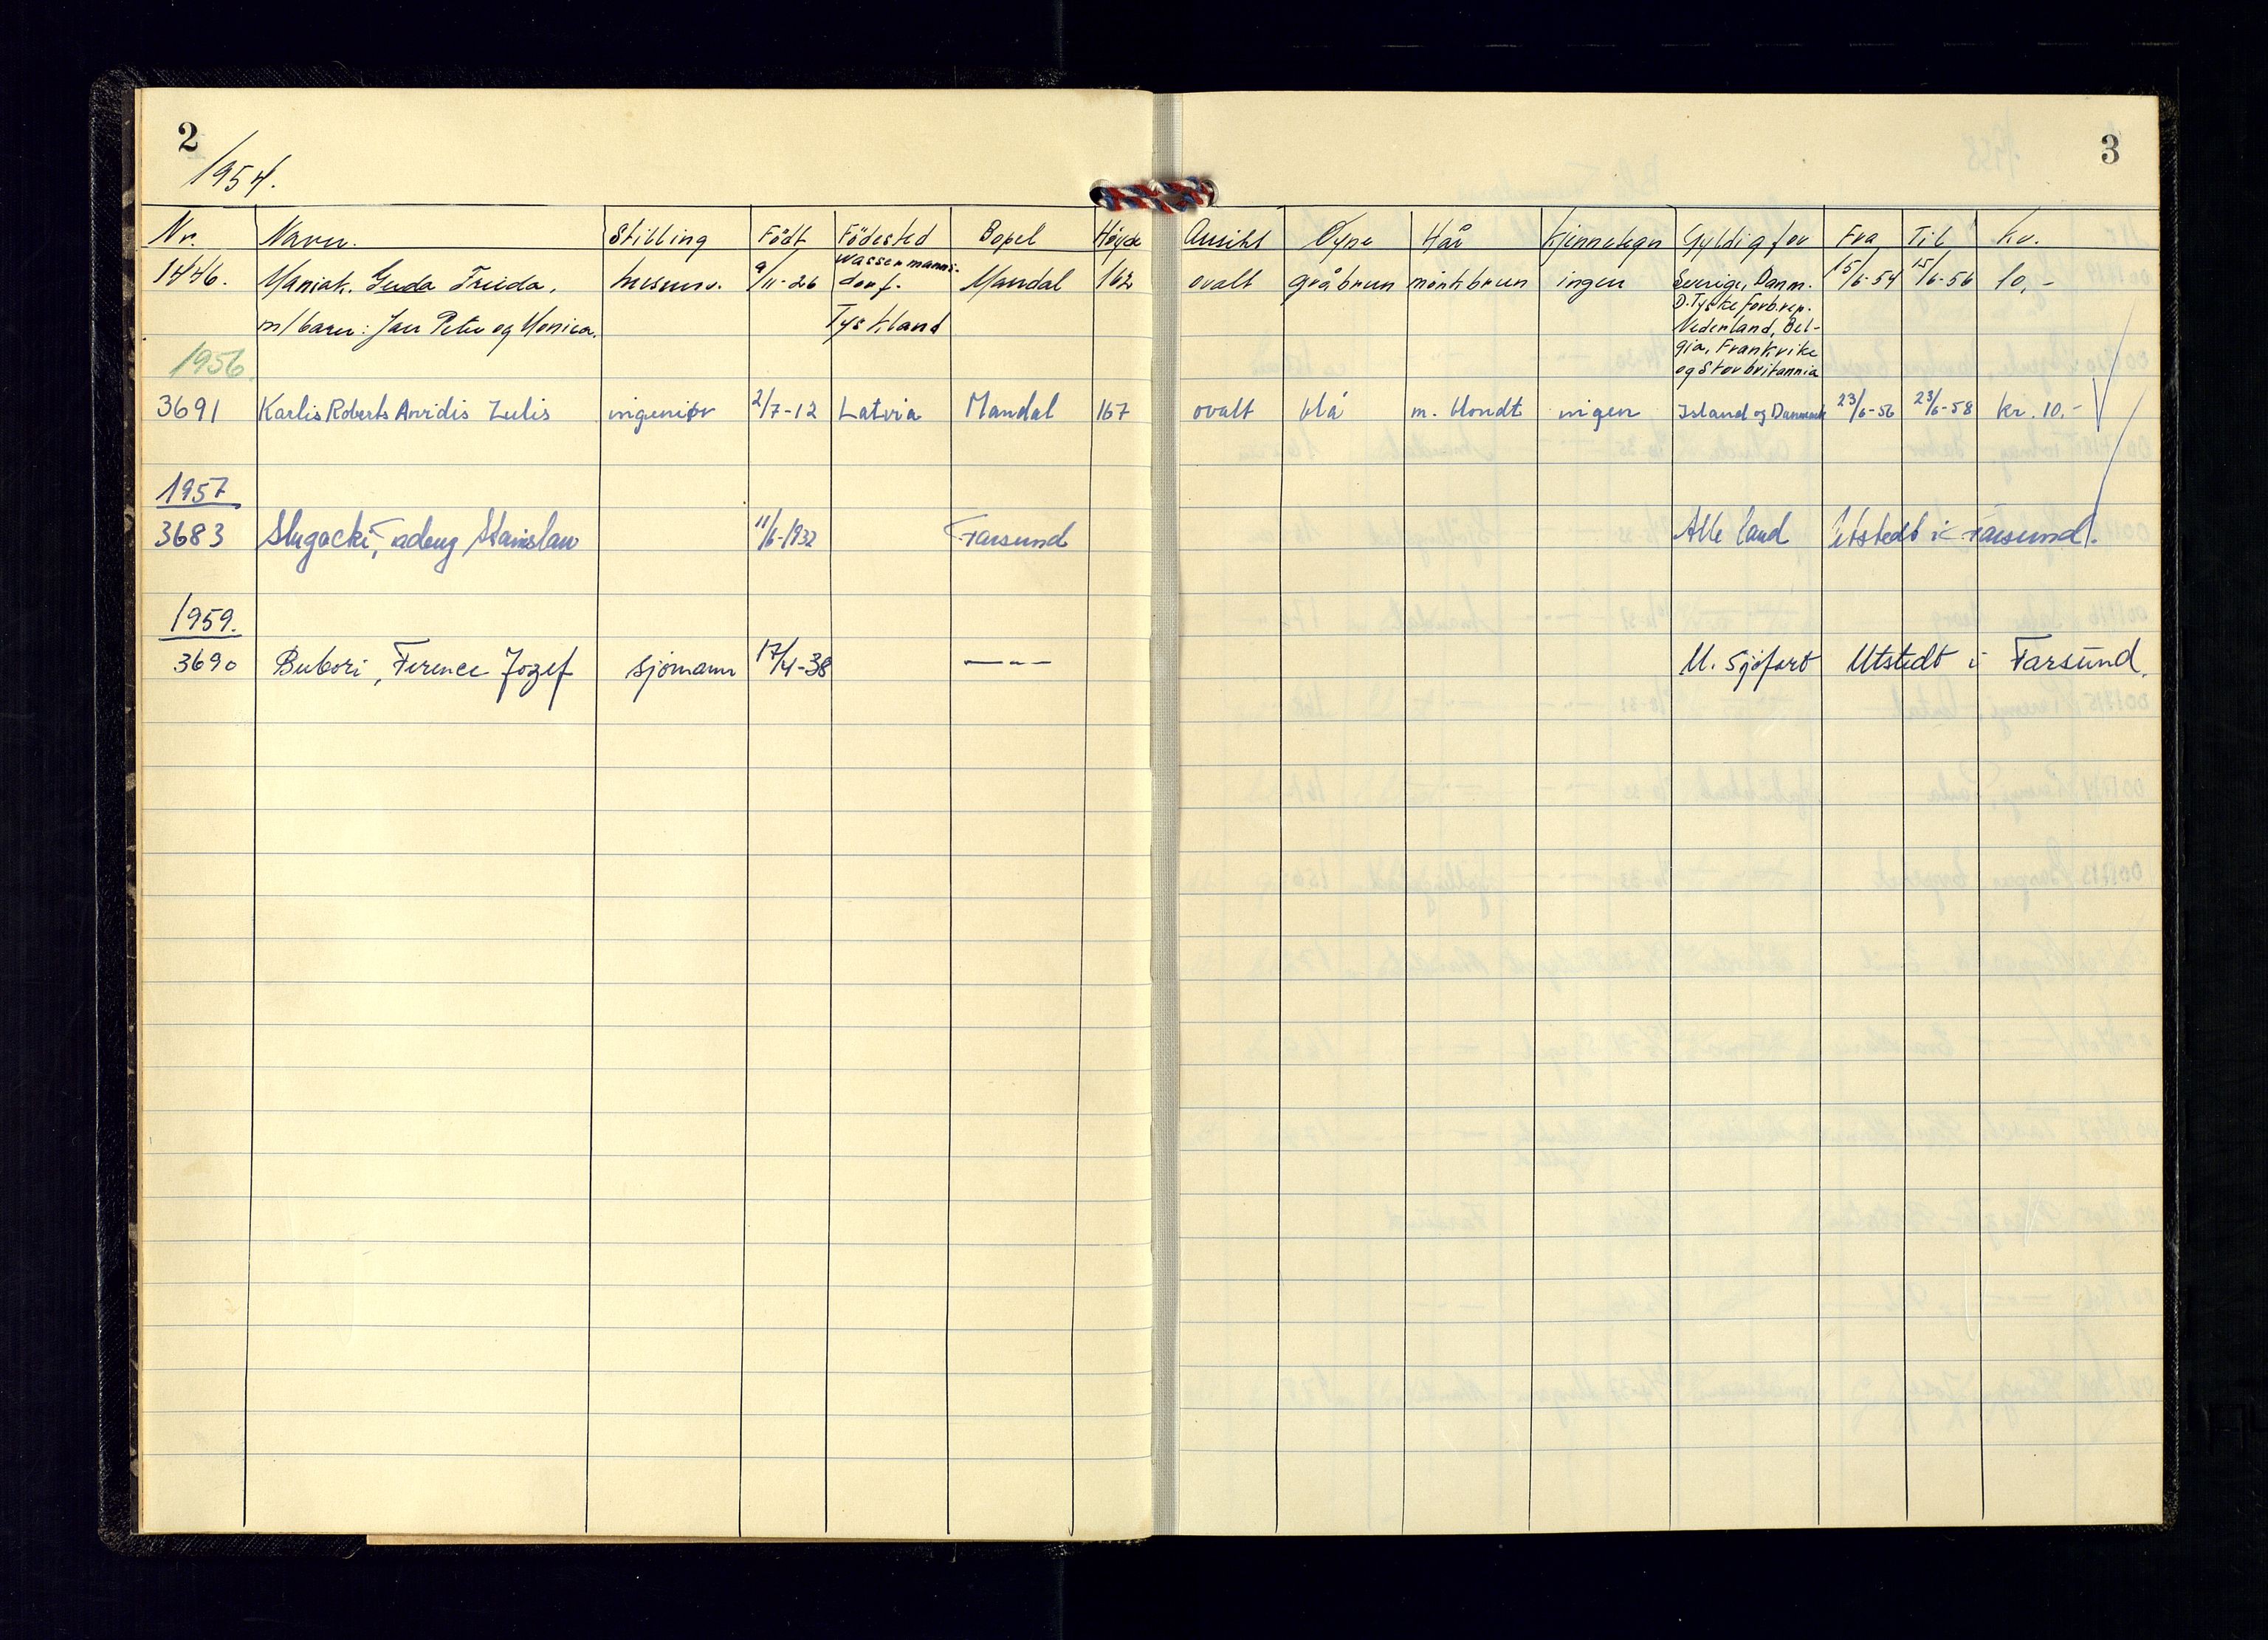 2
3
1954.
Nr. Navn. Stilling Født Fødested Bopel Høyde Ansikt Øyne Hår Kjennetegn Gyldig for Fra Til Kr.
1446. Maniak. Guda Frieda. husmor. 9/11-26 Wassermanns- Mandal 162 ovalt gråbrun mørkbrun ingen Sverige, Danm. 15/6-54 15/6-56 10,-
dorf.
D. Tyske forb.rep.
m/barn: Jan Peter og Monica. Tyskland Nederland, Bel-
gia, Frankrike
og Storbritannia
1956.
3691 Karlis Roberts Arvidis Zulis ingeniør 2/7-12 Latvia Mandal 167 ovalt blå m. blondt ingen Island og Danmark 23/6-56 23/6-58 kr. 10,-
1957
3683 Slugocki, Stanislaw 11/6-1932 Farsund Alle land Utstedt i Farsund.
1959.
3690 Bubori, Ference Jozef sjømann 17/4-38 —„— U. Sjøfart Utstedt i Farsund.